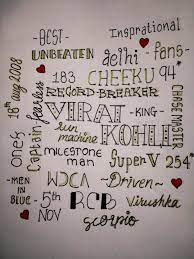 -BEST-
Inspirational
UNBEATEN
delhi
-fans-
18th aug 2008
fearless
183
CHEEKU
94*
RECORD-BREAKER
CHASE MASTER
One8
Captain
VIRAT
-KING-
run machine
KOHLI
MILESTONE man
Super V
254*
-MEN IN BLUE-
WDCA
~Driven~
-5th NOV
RCB
Virushka
scorpio